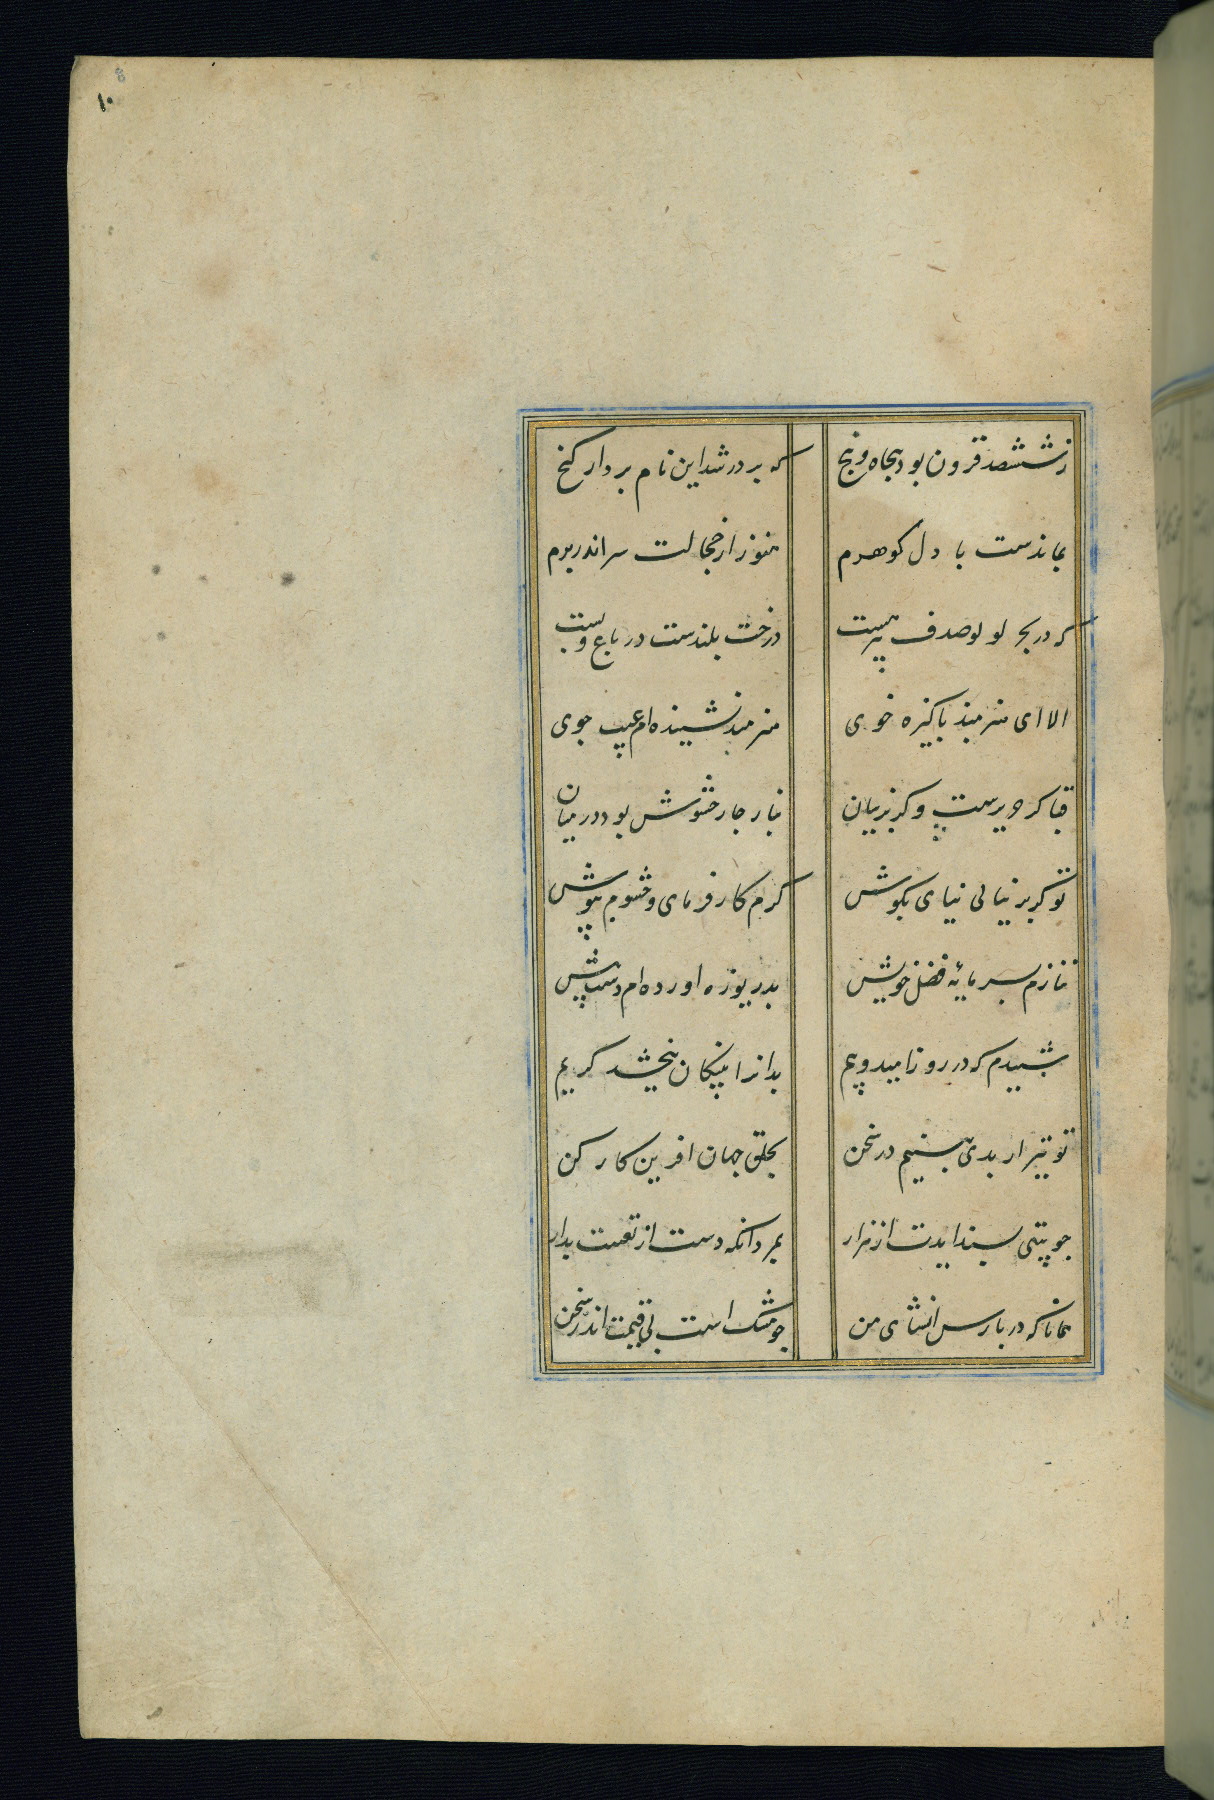 ۱۰
ز ششصد فزون بود پنجاه و پنج
که پر در شد این نام بردار کنج
بماندست با دل کوهرم
هنوز از خجالت سر اندر برم
که در بحر لولو صدف نیز هست
درخت بلندست در باغ و پست
الا ای هنرمند پاکیزه خوی
هنرمند نشنیده‌ام عیب جوی
قبا کر حریرست و کر پرنیان
بناچار حشوش بود در میان
تو کر پرنیانی نیابی مکوش
کرم کار فرمای و حشوم بپوش
ننازم بسرمایه فضل خویش
بدریوزه اورده‌ام دست پیش
شنیدم که در روز امید و بیم
بدانرا بنیکان ببخشد کریم
تو نیز ار بدی بینیم در سخن
بخلق جهان افرین کار کن
چو بیتی پسند ایدت از هزار
بمردانکه دست از تعنت بدار
همانا که در پارس انشای من
چو مشک است بی قیمت اندر ختن